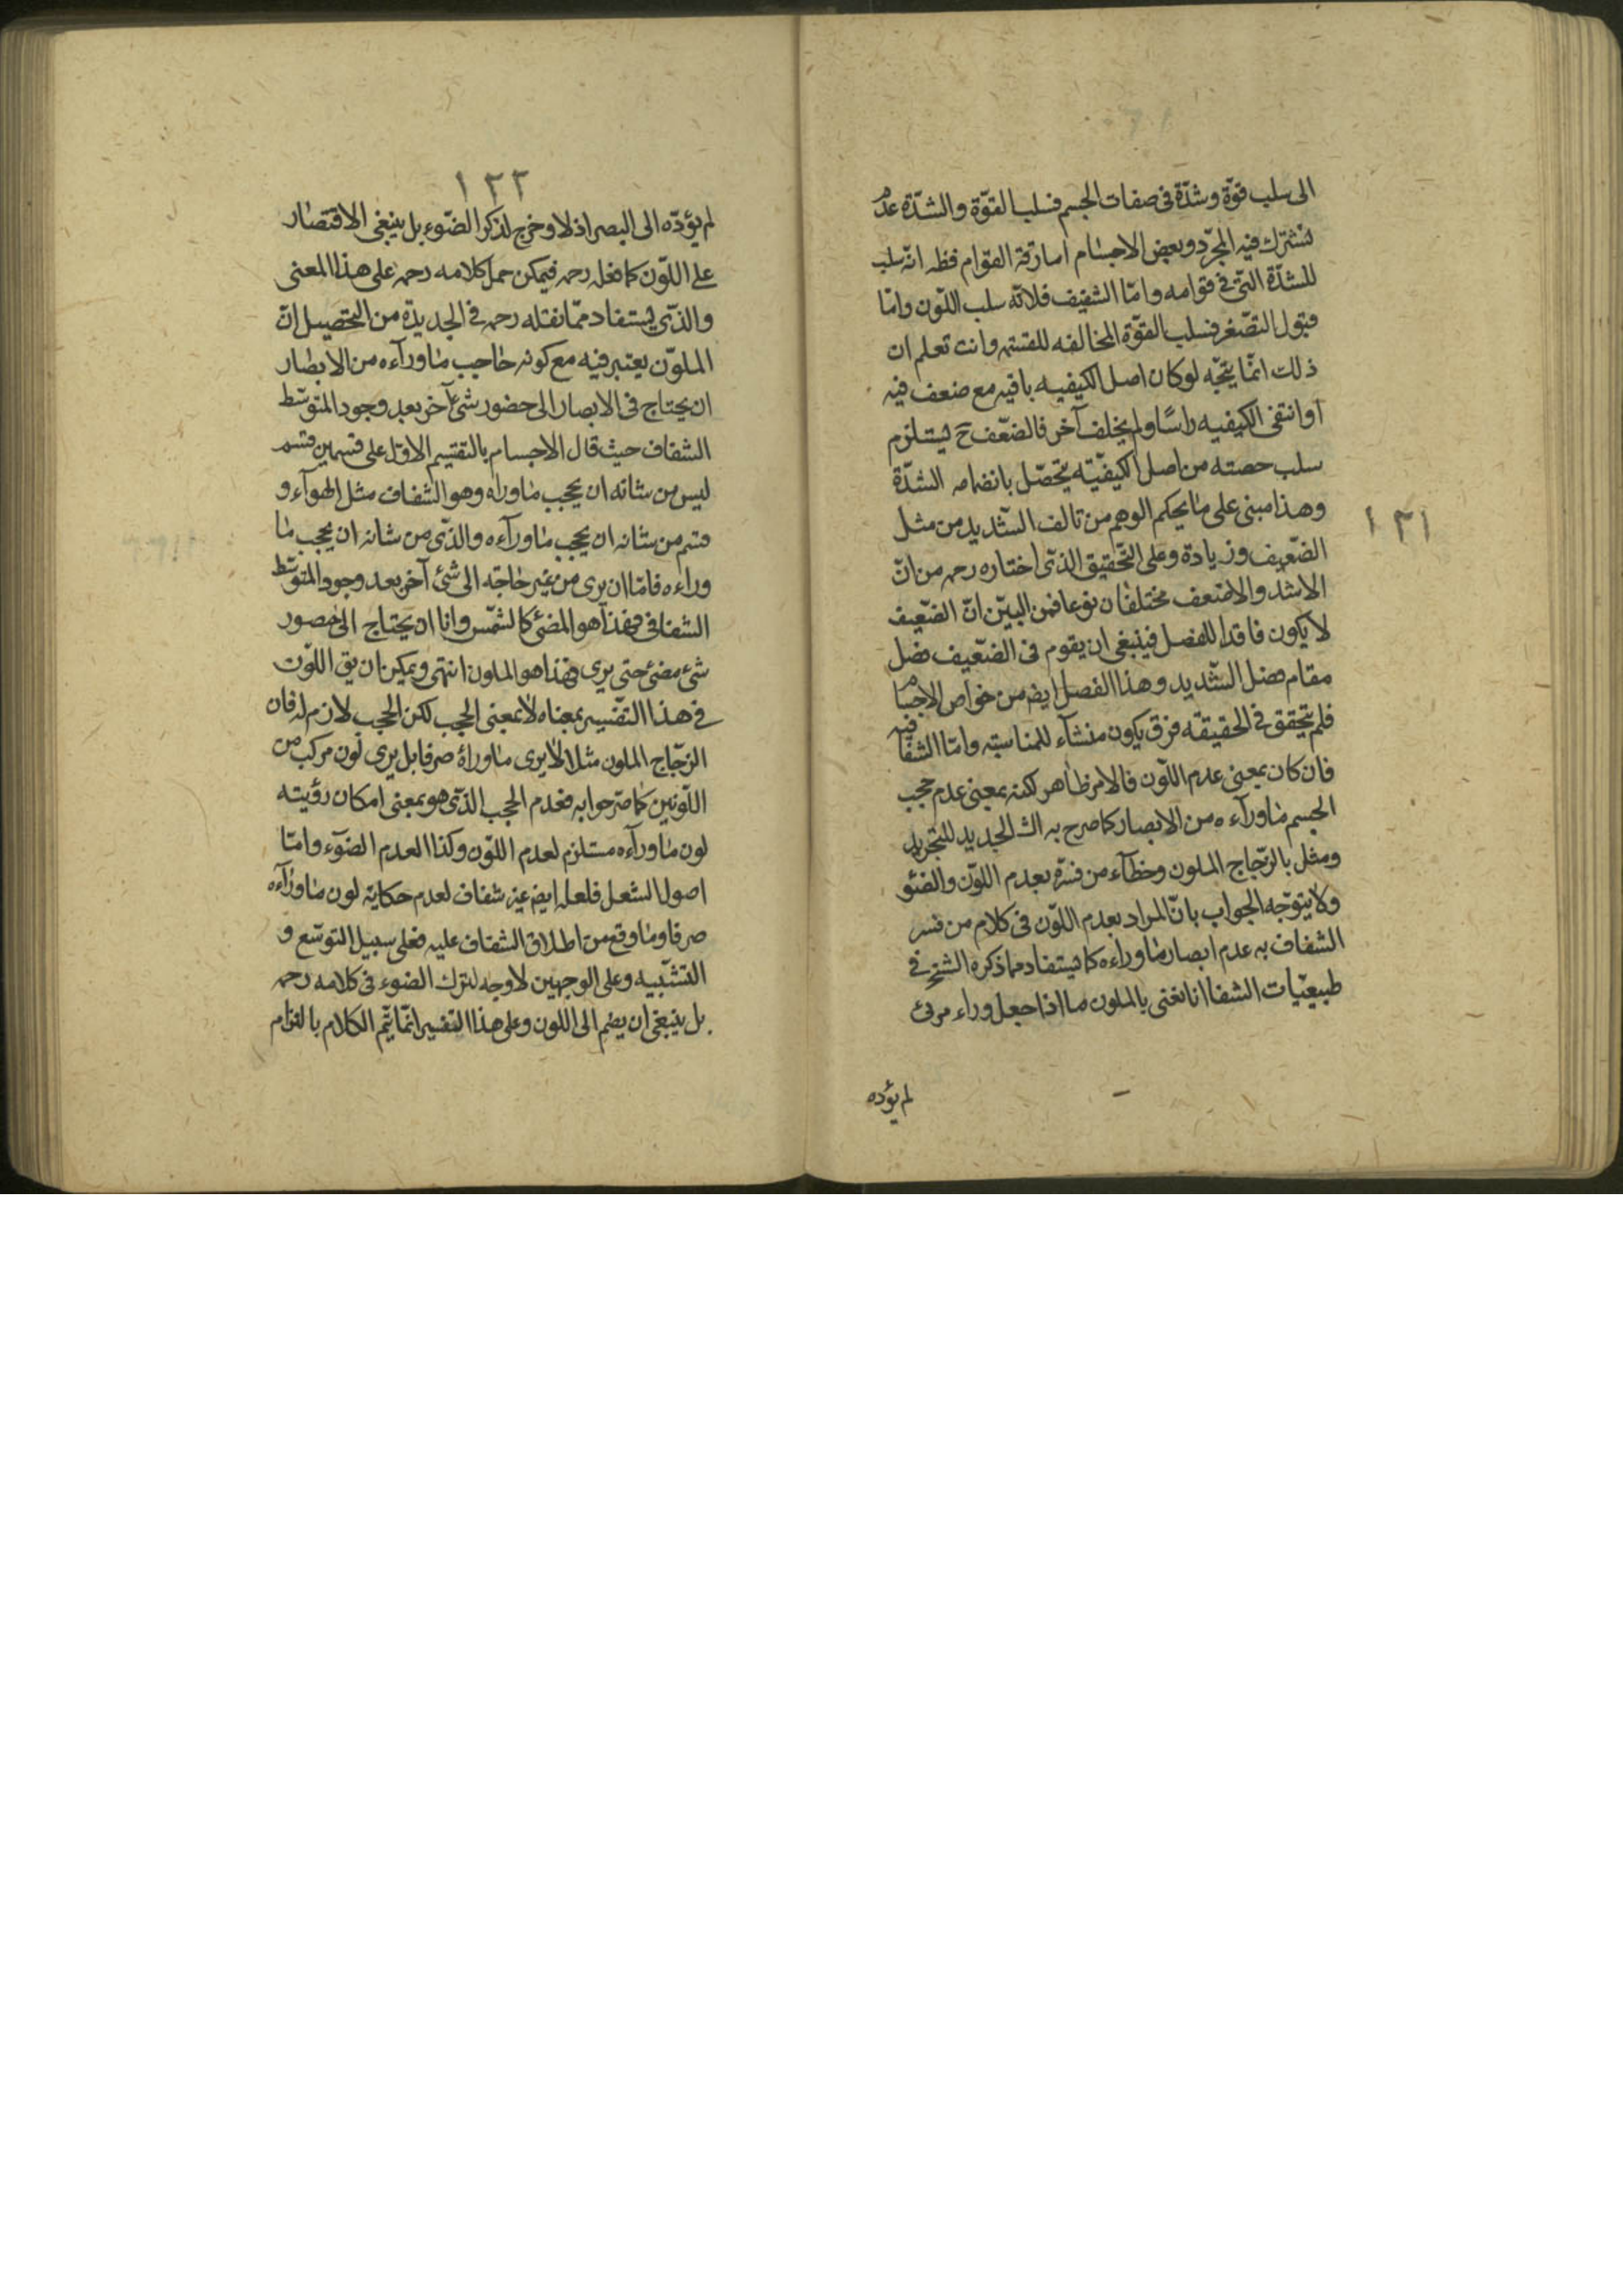 الى سلب قوّة وشدّة فى صفات الجسم فسلب القوّة والشدّة عدم
تشترك فيه المجرّد وبعض الاجسام اما رقة القوام فظ انّه سلب
للشدّة التى فى قوامه وامّا الشفيف فلانّه سلب اللّون وامّا
قبول التصّغر فسلب القوّة المخالفه للقسته وانت تعلم ان
ذلك انّما يتجّه لوكان اصل الكيفيه باقيه مع ضعف فيه
اوانتفى الكيفيه راسًا ولم يخلف آخر فالضعّف ح ليستلزم
سلب حصته من اصل الكيفيّته يتحّصّل بانضمامه الشدّة
وهذا مبنى على ما يحكم الوهم من تالف الشّديد من مثل
الضعّيف وزيادة وعلى التّحقيق الذّى اختاره رحمه من انّ
الاشدّ والاضعف مختلفان نوعا فمن البيّن انّ الضعّيف
لا يكون فاقدا للفصل فينبغى ان يقوم فى الضعّيف فصل
مقام فصل الشّديد وهذا الفصل ايض من خواص الاجسام
فلم يتحقق فى الحقيقته فرق يكون منشآء للمناسبته وامّا الشفافيه
فان كان بمعنى عدم اللّون فالامر ظاهر لكنه بمعنى عدم حجب
الجسم ماورآءه من الابصار كما صرح به الش الجديد للتجريد
ومثل بالزّجاج الملون وخطآء من فسّره بعدم اللّون والضئو
ولا يتوّجه الجواب بانّ المراد بعدم اللّون فى كلام من فسر
الشفاف به عدم ابصار ماوراءه كما يستفاد مما ذكره الشخ فى
طبيعيّات الشفا انا نعنى بالملون ما اذا جعل وراء مرئى
لم يؤده
١٢١
١٢٢
لم يؤدّه الى البصر اذ لا وخرج لذكر الضّوء بل ينبغى الاقتصار
على اللّون كما فعله رحمه فيمكن حمل كلامه رحمه على هذا المعنى
والذّى ليستفاد ممّا نقله رحمه فى الجديدة من التحصيل انّ
الملوّن يعتبر فيه مع كونه حاجب ماورآءه من الابصار
ان يحتاج فى الابصار الى حضور شىء آخر بعد وجود المتوسّط
الشفاف حيث قال الاجسام بالتقسيم الاوّل على قسمين قسم
ليس من شانه ان يحجب ماوراه وهو الشفاف مثل الهوآء و
قسم من شانه ان يحجب ماورآءه والذّى من شانه ان يحجب ما
وراءه فامّا ان يرى من غير حاجته الى شئ آخر بعد وجود المتوسّط
الشفافى فهذا هو المضئ كالشمّس وانا ان يحتاج الى حصور
شىء مضئ حتى يرى فهذا هو الملون انتهى ويمكن ان يق اللّون
فى هذا التفّسير بمعناه لا بمعنى الحجب لكن الحجب لازم له فان
الزجّاج الملون مثلا لا يرى ماوراءه صرفا بل يرى لون مركب من
اللّونين كما صرّحوا به فعدم الحجب الذّى هو بمعنى امكان رؤيته
لون ماورآءه مستلزم لعدم اللّون وكذا العدم الضّوء وامّا
اصول الشعل فلعله ايض غير شفاف لعدم حكاية لون ماورآءه
صرفا وما وقع من اطلاق الشفاف عليه فعلى سبيل التوسّع و
التشّبيه وعلى الوجهين لاوجه لترك الضوء فى كلامه رحمه
بل ينبغى ان يضم الى اللون وعلى هذا التفسير انّما يتّم الكلام بالتزام